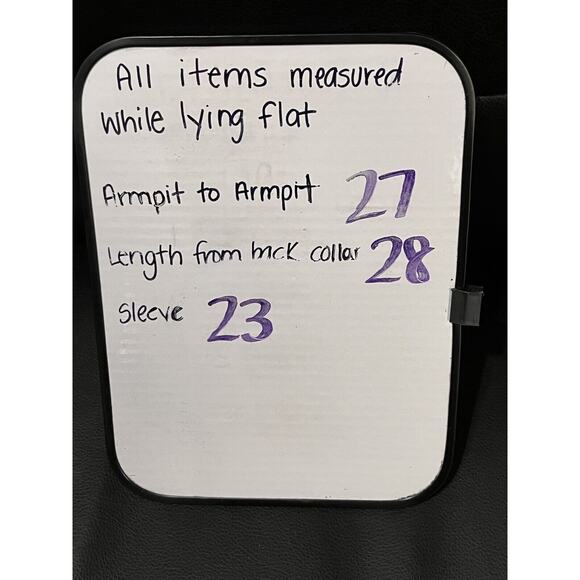 All items measured
while lying flat
Armpit to Armpit 27
Length from back collar 28
Sleeve 23